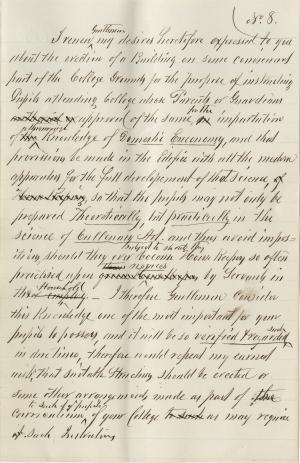 No. 8.
Gentlemen
I renew my desires heretofore expressed to you
about the erection of a Building on some convenient
part of the College Grounds for the purpose of instructing
Pupils attending College whose Parents or Guardians
approved of the same, for the impartation
of Knowledge of Domestic Economy, and that
provisions be made in the Edifice with all the modern
apparatus for the full development of that Science
so that the pupils may not only be
prepared Theoretically but practically in the
science of Cullenary Art. and thus avoid impos-
Subject to should they
ition should they ever become House Keepers so often
novices
practised upon by Servants in
Household
this I therefore Gentlemen consider
this Knowledge one of the most important for your
pupils to possess, and it will be so verified & regarded
in due time, therefore would repeat my earnest
wish, that suitable Structure should be erected or
some other arrangements made as part of
curriculum of your College as may require
of such Instruction